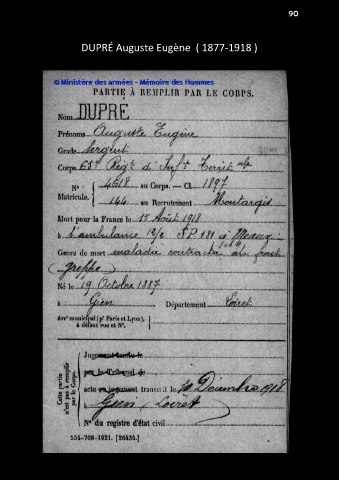 90
DUPRÉ Auguste Eugène ( 1877-1918 )
© Ministère des armées - Mémoire des Hommes
PARTIE À REMPLIR PAR LE CORPS.
Nom DUPRÉ
Prénoms Auguste Eugène
Grade Sergent
Corps 65e Régt d'Inft Territ ale
N° 4618 au Corps. — Cl. 1897
Matricule. 144 au Recrutement Montargis
Mort pour la France le 15 Août 1918
à l'ambulance 12/2 SP 181 à Meaux
Genre de mort maladie contractée au front
(grippe)
Né le 19 Octobre 1887
à Gien Département Loiret
Arrt municipal (pr Paris et Lyon), à défaut rue et N°.
Cette partie n'est pas à remplir par le Corps.
Jugement rendu le
par le Tribunal de
acte ou jugement transcrit le 10 Décembre 1918
à Gien Loiret
N° du registre d'état civil
534-708-1921. [26434.]